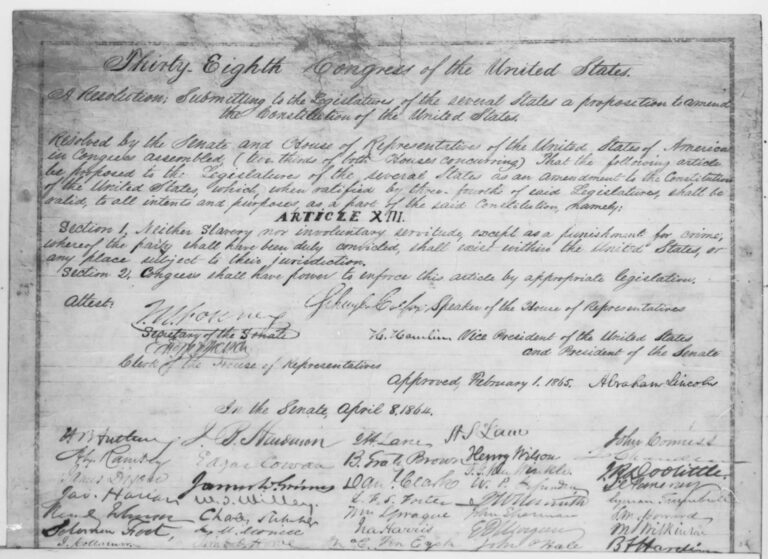 Thirty-Eighth Congress of the United States.
A Resolution; Submitting to the Legislatures of the several States a proposition to amend
the Constitution of the United States.
Resolved by the Senate and House of Representatives of the United States of America
in Congress assembled, (two thirds of both Houses concurring,) That the following article
be proposed to the Legislatures of the several States as an amendment to the Constitution
of the United States, which, when ratified by three-fourths of said Legislatures, shall be
valid, to all intents and purposes, as a part of the said Constitution, namely:
ARTICLE XIII.
Section 1. Neither Slavery nor involuntary servitude, except as a punishment for crime,
whereof the party shall have been duly convicted, shall exist within the United States, or
any place subject to their jurisdiction.
Section 2. Congress shall have power to enforce this article by appropriate legislation.
Attest:
Schuyler Colfax, Speaker of the House of Representatives
J. W. Forney
Secretary of the Senate
H. Hamlin Vice President of the United States
and President of the Senate
Clerk of the House of Representatives
Approved, February 1. 1865. Abraham Lincoln
In the Senate, April 8, 1864.
J. B. Henderson J H Lane H S Lane John Conness
Alex Ramsey Edgar Cowan B. Gratz Brown Henry Wilson Chandler
James W. Grimes Dan Clark J. R. Doolittle
Jas. Harlan W. T. Willey L. F. S. Foster Lyman Trumbull
Chas Sumner Wm Sprague John Sherman
Solomon Foot Ira Harris E D Morgan M. S. Wilkinson
J. Collamer John P Hale